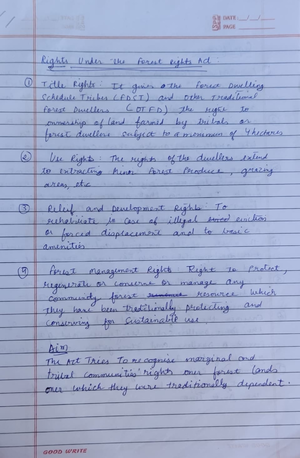 DATE
PAGE
Rights Under the Forest Rights Act
① Title Rights: It gives the Forest Dwelling
Schedule Tribes (FDST) and other Traditional
Forest Dwellers (OTFD) the right to
ownership of land farmed by tribals or
forest dwellers subject to a maximum of 4 hectares
② Use Rights: The rights of the dwellers extend
to extracting Minor Forest Produce, grazing
areas, etc
③ Relief and Development Rights: To
rehabiliate in case of illegal eviction
or forced displacement and to basic
amenities
④ Forest Management Rights Right to Protect,
regenerate or conserve or manage any
community forest resource which
they have been traditionally protecting and
conserving for sustainable use
Aim
The Act Tries To recognise marginal and
tribal communities' rights over forest lands
over which they were traditionally dependent.
GOOD WRITE